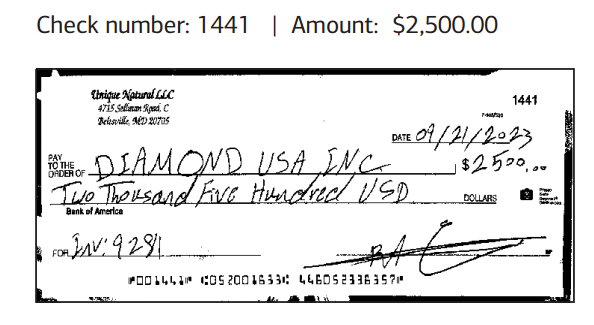 Check number: 1441 | Amount: $2,500.00
Unique Natural LLC
1441
4715 Sellman Road, C
Beltsville, MD 20705
DATE 09/21/2023
PAY TO THE ORDER OF DIAMOND USA INC $2500.00
Two Thousand Five Hundred USD DOLLARS
Bank of America
FOR INV: 9281
⑈001441⑈ ⑆052001633⑆ 446052336357⑈